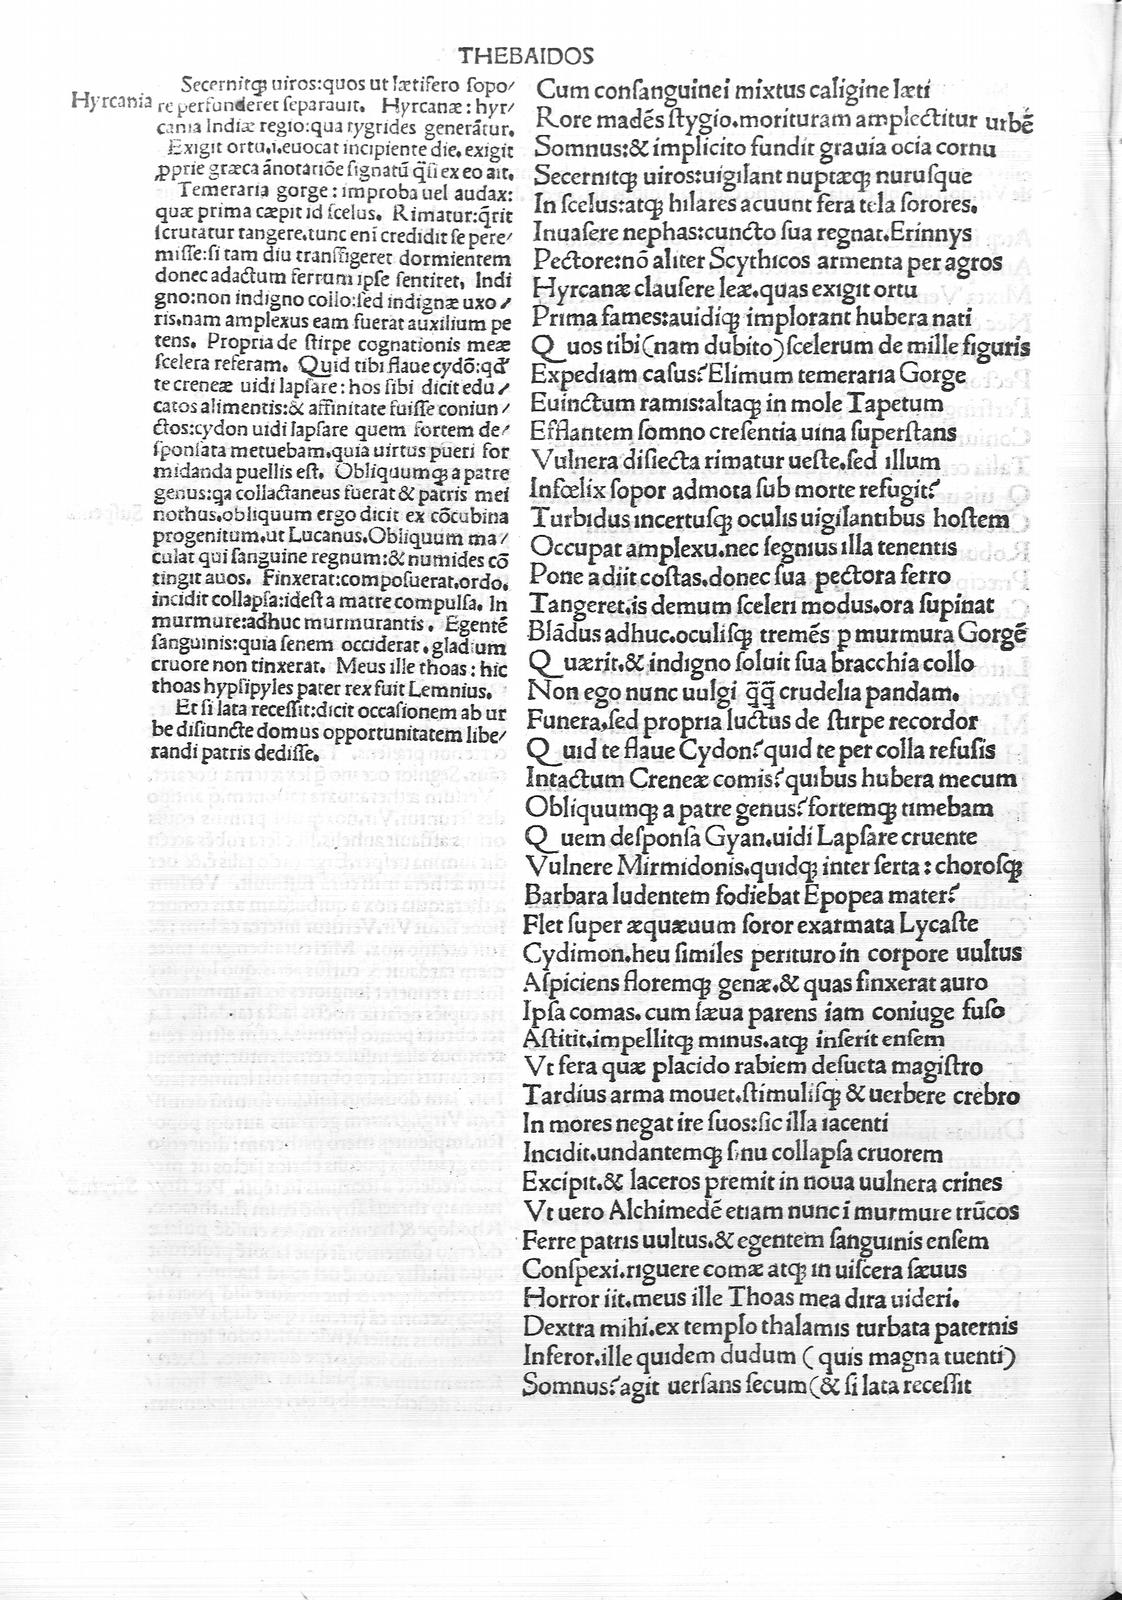 THEBAIDOS
Hyrcania
Secernitqꝫ uiros:quos ut lætifero ſopo/
re perfunderet ſeparauit. Hyrcanæ: hyr/
cania Indiæ regio:qua tygrides generãtur.
Exigit ortu.i.euocat incipiente die. exigit
ꝓprie græca ãnotatiõe ſignatũ q̃ſi ex eo ait.
Temeraria gorge: improba uel audax:
quæ prima cæpit id ſcelus. Rimatur:q̃rit
ſcrutatur tangere.tunc eni credidit ſe pere/
miſſe:ſi tam diu tranſfigeret dormientem
donec adactum ferrum ipſe ſentiret. Indi
gno:non indigno collo:ſed indignæ uxo/
ris.nam amplexus eam fuerat auxilium pe
tens. Propria de ſtirpe cognationis meæ
ſcelera referam. Quid tibi flaue cydõ:qđ
te creneæ uidi lapſare: hos ſibi dicit edu/
catos alimentis:& affinitate fuiſſe coniun/
ctos:cydon uidi lapſare quem fortem de/
ſponſata metuebam.quia uirtus pueri for
midanda puellis eſt. Obliquumqꝫ a patre
genus:qa collactaneus fuerat & patris mei
nothus.obliquum ergo dicit ex cõcubina
progenitum.ut Lucanus.Obliquum ma/
culat qui ſanguine regnum:& numides cõ
tingit auos. Finxerat:compoſuerat.ordo.
incidit collapſa:ideſt a matre compulſa. In
murmure:adhuc murmurantis. Egentẽ
ſanguinis:quia ſenem occiderat.gladium
cruore non tinxerat. Meus ille thoas: hic
thoas hypſipyles pater rex fuit Lemnius.
Et ſi lata receſſit:dicit occaſionem ab ur
be diſiuncte domus opportunitatem libe/
randi patris dediſſe.
Cum conſanguinei mixtus caligine læti
Rore madẽs ſtygio.morituram amplectitur urbẽ
Somnus:& implicito fundit grauia ocia cornu
Secernitqꝫ uiros:uigilant nuptæqꝫ nuruſque
In ſcelus:atqꝫ hilares acuunt fera tela ſorores.
Inuaſere nephas:cuncto ſua regnat.Erinnys
Pectore:nõ aliter Scythicos armenta per agros
Hyrcanæ clauſere leæ.quas exigit ortu
Prima fames:auidiqꝫ implorant hubera nati
Quos tibi(nam dubito)ſcelerum de mille figuris
Expediam caſus?Elimum temeraria Gorge
Euinctum ramis:altaqꝫ in mole Tapetum
Efflantem ſomno creſentia uina ſuperſtans
Vulnera diſiecta rimatur ueſte.ſed illum
Infœlix ſopor admota ſub morte refugit?
Turbidus incertuſqꝫ oculis uigilantibus hoſtem
Occupat amplexu.nec ſegnius illa tenentis
Pone adiit coſtas.donec ſua pectora ferro
Tangeret.is demum ſceleri modus.ora ſupinat
Blãdus adhuc.oculiſqꝫ tremẽs p murmura Gorgẽ
Quærit.& indigno ſoluit ſua bracchia collo
Non ego nunc uulgi q̃q̃ crudelia pandam.
Funera.ſed propria luctus de ſtirpe recordor
Quid te flaue Cydon?quid te per colla refuſis
Intactum Creneæ comis?quibus hubera mecum
Obliquumqꝫ a patre genus?fortemqꝫ timebam
Quem deſponſa Gyan.uidi Lapſare cruente
Vulnere Mirmidonis.quidqꝫ inter ſerta: choroſqꝫ
Barbara ludentem fodiebat Epopea mater?
Flet ſuper æquæuum ſoror exarmata Lycaſte
Cydimon.heu ſimiles perituro in corpore uultus
Aſpiciens floremqꝫ genæ.& quas finxerat auro
Ipſa comas. cum ſæua parens iam coniuge fuſo
Aſtitit.impellitqꝫ minus.atqꝫ inſerit enſem
Vt fera quæ placido rabiem deſueta magiſtro
Tardius arma mouet.ſtimuliſqꝫ & uerbere crebro
In mores negat ire ſuos:ſic illa iacenti
Incidit.undantemqꝫ ſinu collapſa cruorem
Excipit.& laceros premit in noua uulnera crines
Vt uero Alchimedẽ etiam nunc i murmure trũcos
Ferre patris uultus.& egentem ſanguinis enſem
Conſpexi.riguere comæ atqꝫ in uiſcera ſæuus
Horror iit.meus ille Thoas mea dira uideri.
Dextra mihi.ex templo thalamis turbata paternis
Inferor.ille quidem dudum ( quis magna tuenti)
Somnus?agit uerſans ſecum(& ſi lata receſſit